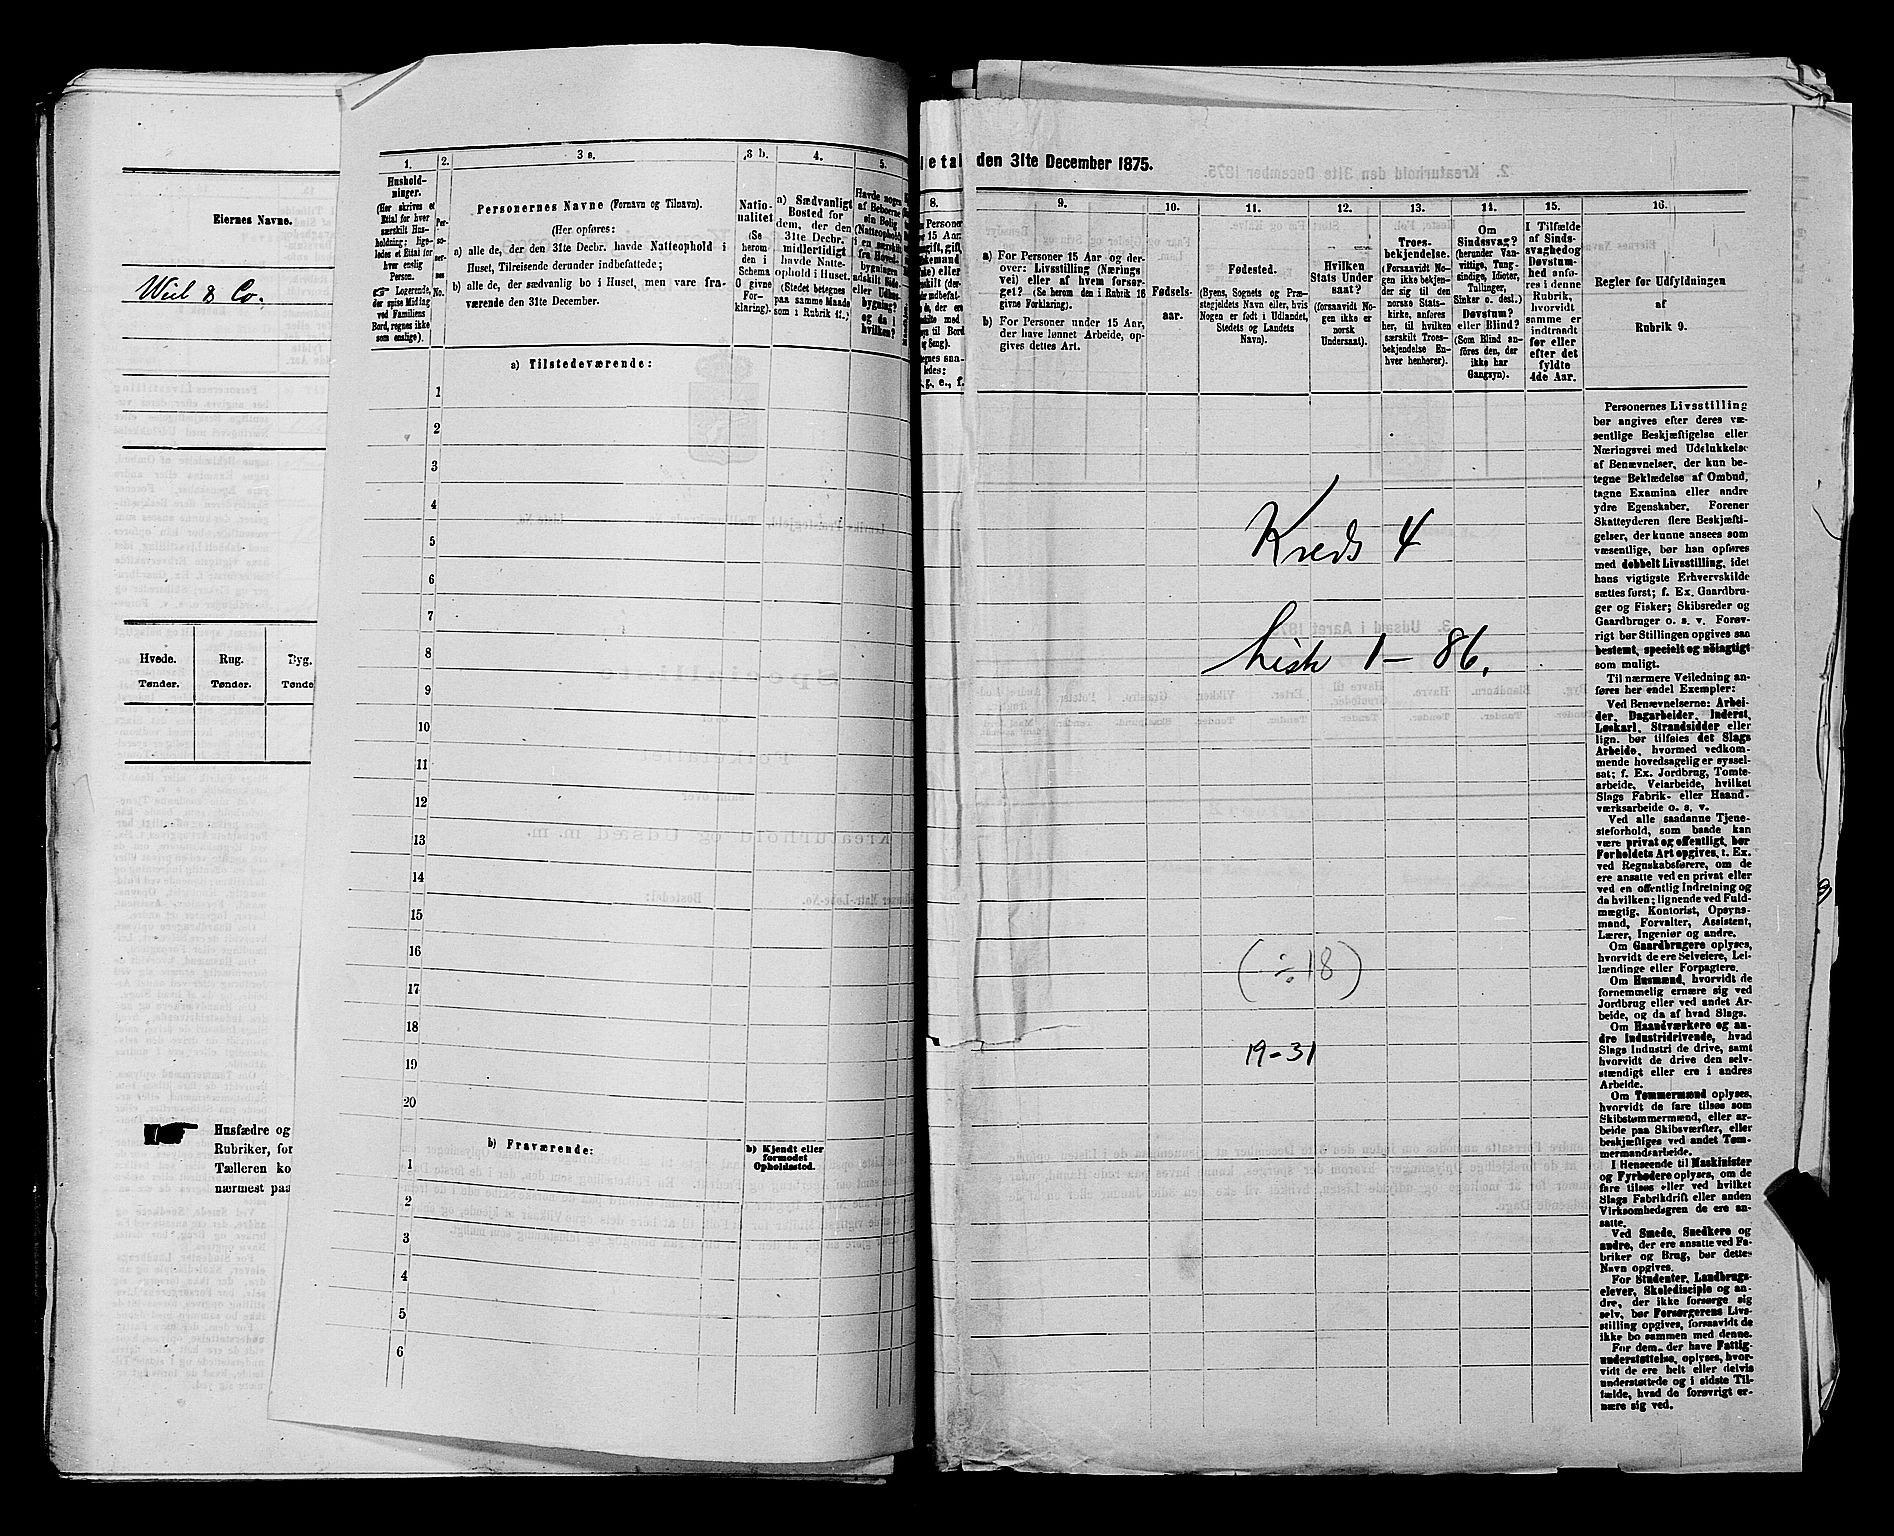 Eiernes Navne.
Weil & Co.
Hvede. Rug. Byg.
Tønder. Tønder. Tønde
Husfædre og
Rubriker, for
Tælleren ko
nærmest paa
1.
Hushold-
ninger.
(Her skrives et
Ettal for hver
særskilt Hus-
holdning; lige-
ledes et Ettal for
hver enslig
Person.
Logerende,
der spise Middag
ved Familiens
Bord, regnes ikke
som enslige).
2.
Per-
so-
ner-
nes
No.
3 a.
Personernes Navne (Fornavn og Tilnavn).
(Her opføres:
a) alle de, der den 31te Decbr. havde Natteophold i
Huset, Tilreisende derunder indbefattede;
b) alle de, der sædvanlig bo i Huset, men vare fra-
værende den 31te December.
3 b.
Natio-
nalitet
(Se
herom
den i
Schema
O givne
For-
klaring).
4.
a) Sædvanligt
Bosted for
dem, der den
31te Decbr.
midlertidigt
havde Natte-
ophold i Huset.
(Stedet betegnes
paa samme Maade
som i Rubrik 11.)
5.
Havde nogen
af Beboerne
sin Bolig
(Natteophold)
i en særskilt
fra Hoved-
bygningen
adskilt Side-
eller Udhus-
bygning?
og da i
hvilken?
a) Tilstedeværende:
1
2
3
4
5
6
7
8
9
10
11
12
13
14
15
16
17
18
19
20
b) Fraværende:
b) Kjendt eller
formodet
Opholdssted.
1
2
3
4
5
6
letal den 31te December 1875.
8.
9.
a) For Personer 15 Aar og der-
over: Livsstilling (Nærings
vei) eller af hvem forsør-
get? (Se herom den i Rubrik 16
givne Forklaring).
b) For Personer under 15 Aar,
der have lønnet Arbeide, op-
gives dettes Art.
10.
Fødsels-
aar.
11.
Fødested.
(Byens, Sognets og Præ-
stegjeldets Navn eller, hvis
Nogen er født i Udlandet,
Stedets og Landets
Navn).
12.
Hvilken
Stats Under
saat?
(forsaavidt No-
gen ikke er
norsk
Undersaat).
13.
Troes-
bekjendelse.
(Forsaavidt No-
gen ikke bekjen-
der sig til den
norske Stats-
kirke, anføres
her, til hvilken
særskilt Troes-
bekjendelse En-
hver henhører).
14.
Om
Sindssvag?
(herunder Van-
vittige, Tung-
sindige, Idioter,
Tullinger,
Sinker o. desl.)
Døvstum?
eller Blind?
(Som Blind an-
føres den, der
ikke har
Gangsyn).
15.
I Tilfælde
af Sinds-
svaghed og
Døvstum-
hed anfø-
res i denne
Rubrik,
hvorvidt
samme er
indtraadt
før eller
efter det
fyldte
4de Aar.
16.
Regler for Udfyldningen
af
Rubrik 9.
Kreds 4
Liste 1 – 86.
(÷18)
19–31
Personernes Livsstilling
bør angives efter deres væ-
sentlige Beskjæftigelse eller
Næringsvei med Udelukkelse
af Benævnelser, der kun be-
tegne Beklædelse af Ombud,
tagne Examina eller andre
ydre Egenskaber. Forener
Skatteyderen flere Beskjæfti-
gelser, der kunne ansees som
væsentlige, bør han opføres
med dobbelt Livsstilling, idet
hans vigtigste Erhvervskilde
sættes først; f. Ex. Gaardbru-
ger og Fisker; Skibsreder og
Gaardbruger o. s. v. Forøv-
rigt bør Stillingen opgives saa
bestemt, specielt og nöiagtigt
som muligt.
Til nærmere Veiledning an-
føres her endel Exempler:
Ved Benævnelserne: Arbei-
der, Dagarbeider, Inderst,
Løskarl, Strandsidder eller
lign. bør tilføies det Slags
Arbeide, hvormed vedkom-
mende hovedsagelig er syssel-
sat; f. Ex. Jordbrug, Tomte-
arbeide, Veiarbeide, hvilket
Slags Fabrik- eller Haand-
værksarbeide o. s. v.
Ved alle saadanne Tjene-
steforhold, som baade kan
være privat og offentligt, bør
Forholdets Art opgives, t. Ex.
ved Regnskabsførere, om de
ere ansatte ved en privat eller
ved en offentlig Indretning og
da hvilken; lignende ved Fuld-
mægtig, Kontorist, Opsyns-
mand, Forvalter, Assistent,
Lærer, Ingeniør og andre.
Om Gaardbrugere oplyses,
hvorvidt de ere Selveiere, Lei-
lændinge eller Forpagtere.
Om Husmænd, hvorvidt de
fornemmelig ernære sig ved
Jordbrug eller ved andet Ar-
beide, og da af hvad Slags.
Om Haandværkere og an-
dre Industridrivende, hvad
Slags Industri de drive, samt
hvorvidt de drive den selv-
stændigt eller ere i andres
Arbeide.
Om Tømmermænd oplyses,
hvorvidt de fare tilsøs som
Skibstømmermænd, eller ar-
beide paa Skibsværfter, eller
beskjæftiges ved andet Tøm-
mermandsarbeide.
I Henseende til Maskinister
og Fyrbødere oplyses, om de
fare tilsøs eller ved hvilket
Slags Fabrikdrift eller anden
Virksomhedsgren de ere an-
satte.
Ved Smede, Snedkere og
andre, der ere ansatte ved Fa-
briker og Brug, bør dettes
Navn opgives.
For Studenter, Landbrugs-
elever, Skoledisciple og an-
dre, der ikke forsørge sig
selv, bør Forsørgerens Livs-
stilling opgives, forsaavidt de
ikke bo sammen med denne.
For dem, der have Fattig-
understøttelse, oplyses, hvor-
vidt de ere helt eller delvis
understøttede og i sidste Til-
fælde, hvad de forøvrigt er-
nære sig ved.